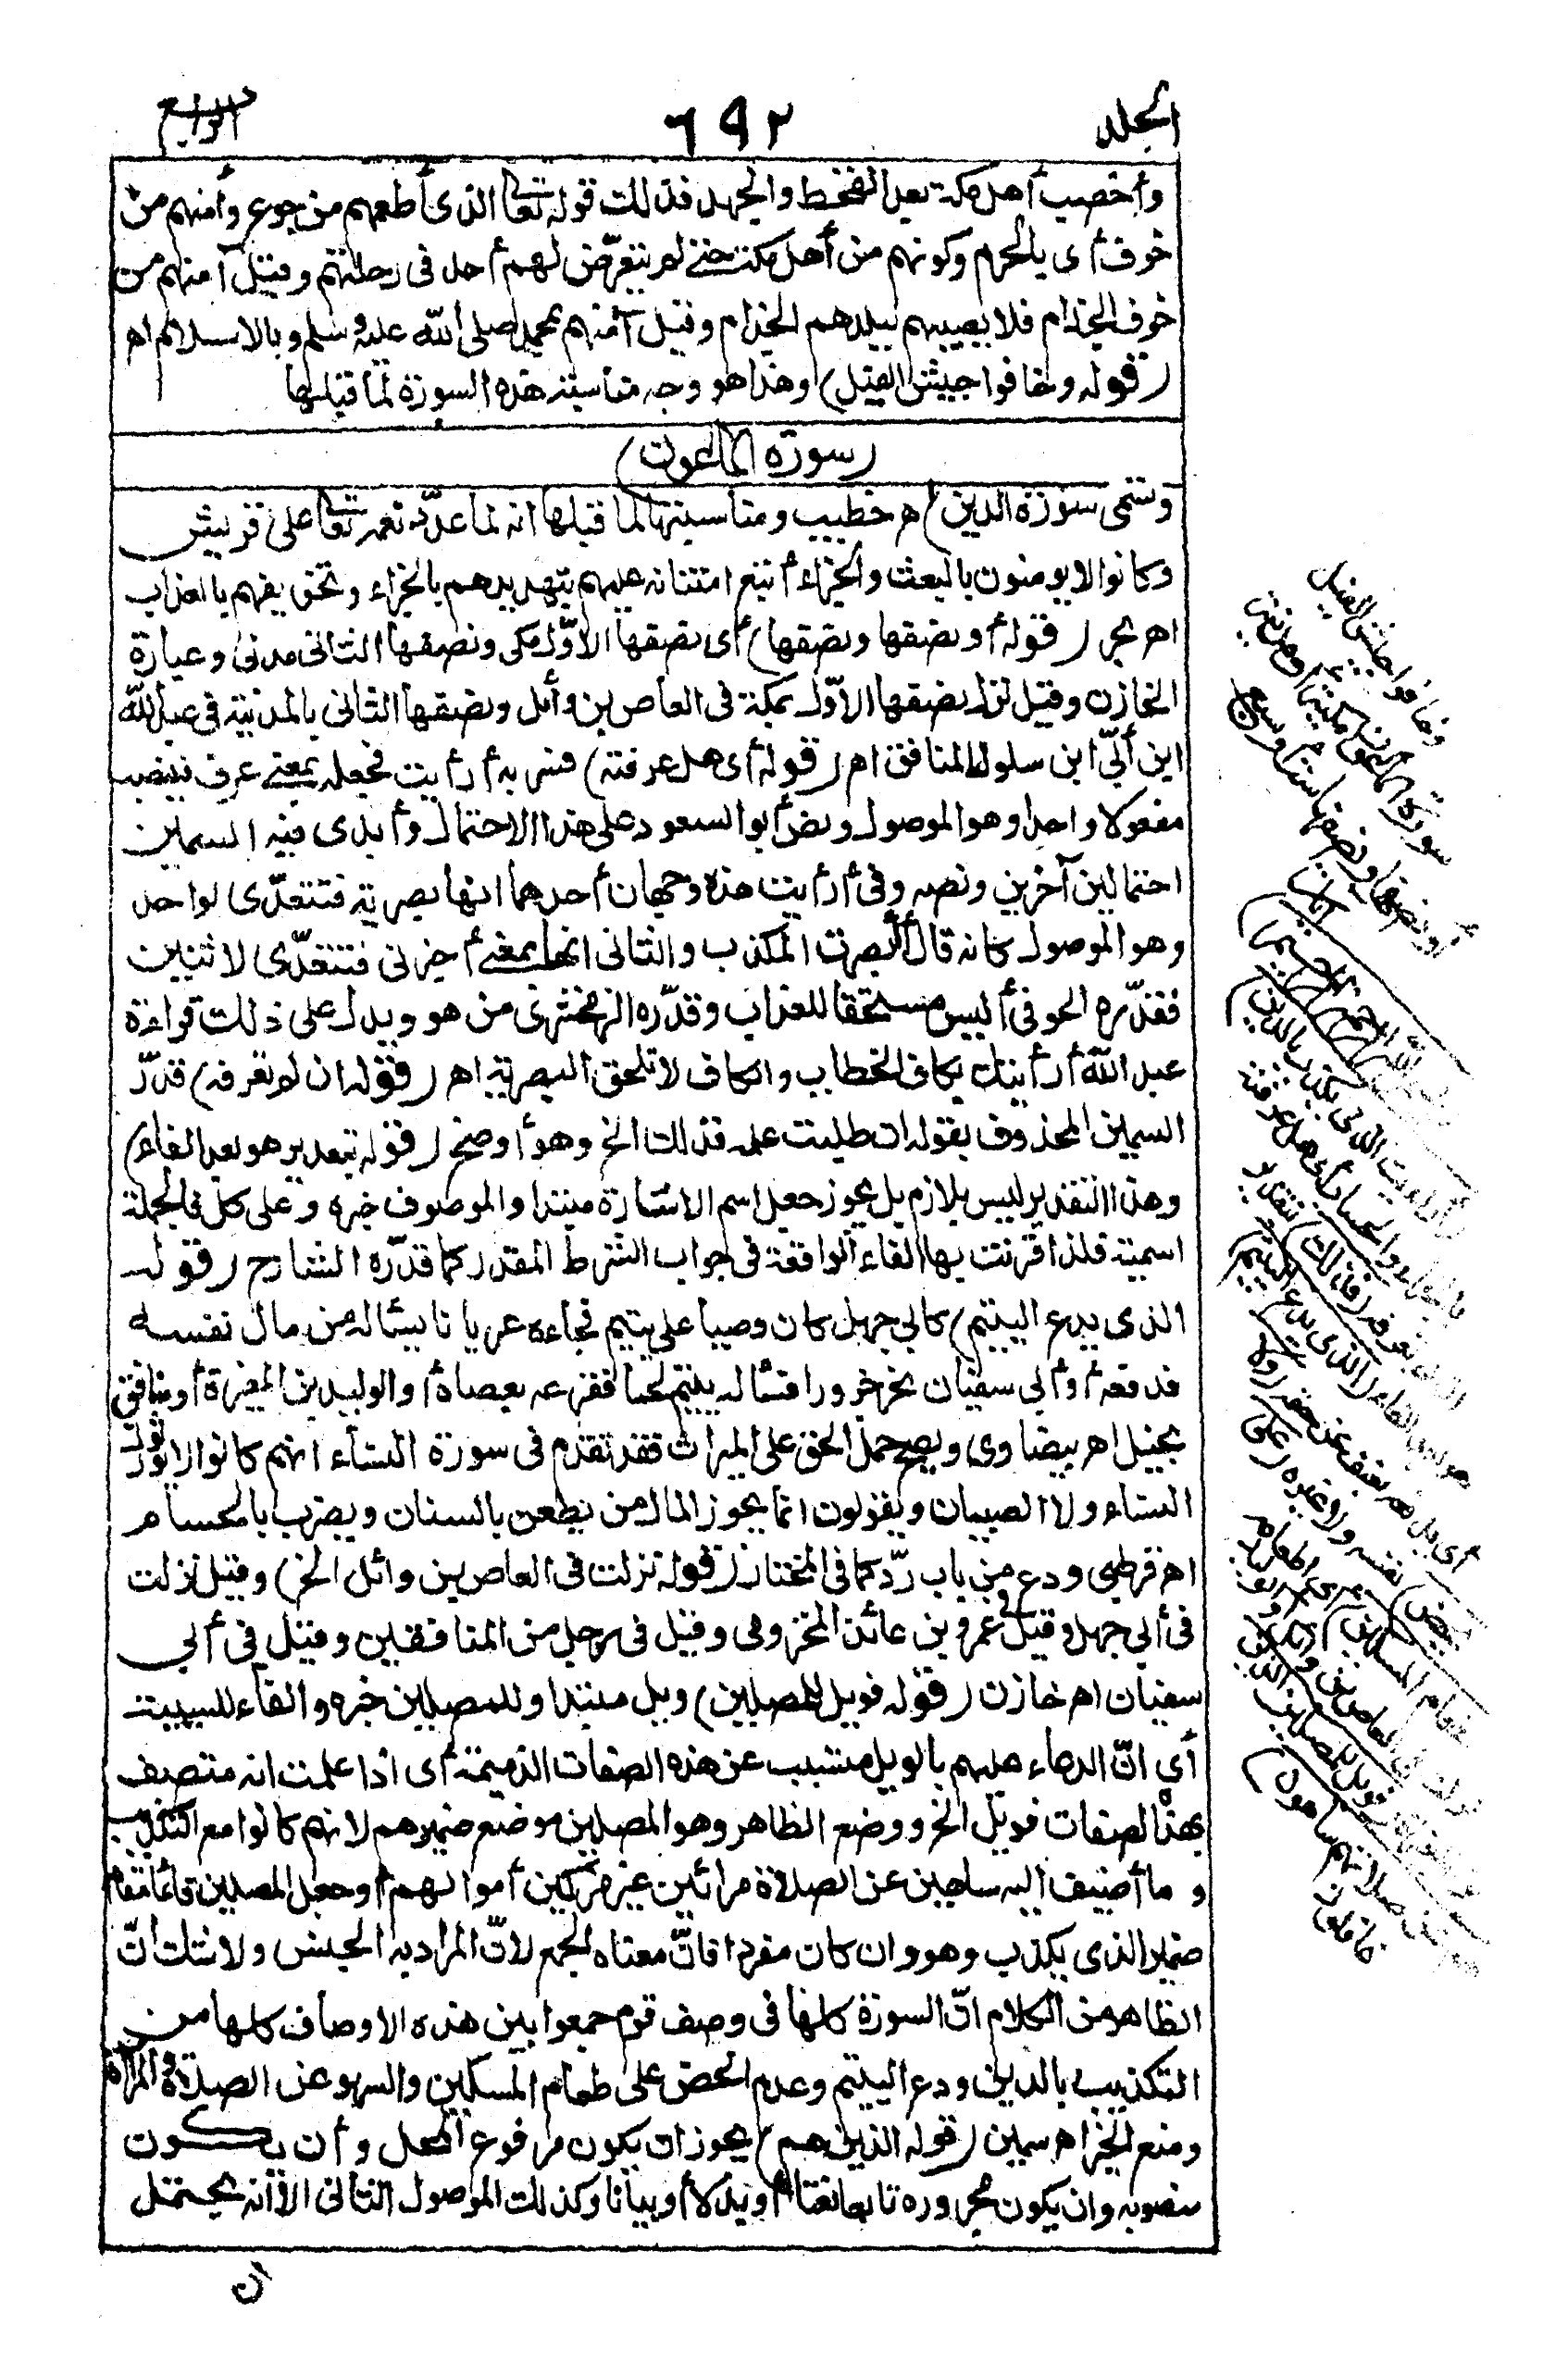 الجلد ٦٩٢ الرابع
وأخصب أهل مكة بعد القحط والجهد فذلك قوله تعالى الذى أطعمهم من جوع وأمنهم من
خوف أى بالحرم وكونهم من أهل مكة حتى لم يتعرّض لهم أحد فى رحلتهم وقيل آمنهم من
خوف الجذام فلا يصيبهم ببلدهم الجذام وقيل آمنهم بمحمد صلى الله عليه وسلم وبالاسلام اه
(قوله وخافوا جيش الفيل) وهذا هو وجه مناسبة هذه السورة لما قبلها
(سورة الماعون)
وتسمى سورة الدين اه خطيب ومناسبتها لما قبلها انه لما عدّد نعمه تعالى على قريش
وكانوا لا يومنون بالبعث والجزاء أتبع امتنانه عليهم بتهديدهم بالجزاء وتخويفهم بالعذاب
اهر بحر (قوله أو نصفها ونصفها) أى نصفها الاوّل مكى ونصفها الثانى مدنى وعبارة
الخازن وقيل نزل نصفها الاوّل بمكة فى العاص بن وأئل ونصفها الثانى بالمدنية فى عبد الله
ابن أبىّ ابن سلول المنافق اه (قوله أى هل عرفته) فسر به أرأيت فجعله بمعنى عرف فينصب
مفعولا واحدا وهو الموصول ونص أبو السعود على هذا الاحتمال وأبدى فيه السمين
احتمالين آخرين ونصه وفى أرأيت هذه وجهان أحدهما انها بصرية فتتعدّى لواحد
وهو الموصول كانه قال أأبصرت المكذب والثانى انها بمعنى أخبرنى فتتعدّى لاثنين
فقدّره الحوفى أليس مستحقا للعذاب وقدّره الزمخشرى من هو ويدل على ذلك قراءة
عبد الله أرأيتك بكاف الخطاب والكاف لا تلحق البصرية اهر (قوله ان لم تعرفه) قدّر
السمين المحذوف بقوله ان طلبت علمه فذلك الخ وهو أوضح (قوله بتقدير هو بعد الفاء)
وهذا التقدير ليس بلازم بل يجوز جعل اسم الاشارة مبتدا والموصوف خبره وعلى كل فالجملة
اسمية فلذا اقترنت بها الفاء الواقعة فى جواب الشرط المقدر كما قدّره الشارح (قوله
الذى يدع اليتيم) كابى جهل كان وصيا على يتيم فجاءه عريانا يسأله من مال نفسه
فدفعه أو أبى سفيان نحر جزورا فسأله يتيم لحما فقرعه بعصاه أو الوليد بن المغيرة أو منافق
بخيل اهر بيضاوى ويصح حمل الحق على الميراث فقد تقدّم فى سورة النساء انهم كانوا لا يورثون
النساء ولا الصبيان ويقولون انما يحوز المال من يطعن بالسنان ويضرب بالحسام
اهر قرطبى ودع من باب ردّ كما فى المختار (قوله نزلت فى العاص بن وائل الخ) وقيل نزلت
فى أبى جهل وقيل فى عمرو بن عائذ المخزومى وقيل فى رجل من المنافقين وقيل فى أبى
سفيان اهر خازن (قوله فويل للمصلين) ويل مبتدا وللمصلين خبره والفاء للسببية
أى انّ الدعاء عليهم بالويل متسبب عن هذه الصفات الذميمة أى اذا علمت انه متصف
بهذه الصفات فويل الخ ووضع الظاهر وهو المصلين موضع ضميرهم لانهم كانوا مع التكذيب
وما أضيف اليه ساهين عن الصلاة مرائين غير مزكين أموالهم أو جعل المصلين قائما مقام
ضمير الذى يكذب وهو وان كان مفردا فانّ معناه الجمع لانّ المراد به الجنس ولا شك انّ
الظاهر من الكلام انّ السورة كلها فى وصف قوم جمعوا بين هذه الاوصاف كلها من
التكذيب بالدين ودع اليتيم وعدم الحض على طعام المسكين والسهو عن الصلاة والمراآة
ومنع الخير اهر سمين (قوله الذين هم) يجوز ان يكون مرفوع المحل وأن يكون
منصوبه وان يكون مجروره تابعا نعتا أو بدلا أو بيانا وكذلك الموصول الثانى الا أنه يحتمل
ان
وخافوا جيش الفيل
سورة الماعون مكية أو مدنية
أو نصفها ونصفها ست أو سبع
آيات
بسم الله الرحمن الرحيم
(أرأيت الذى يكذب بالدين)
بالجزاء والحساب أى هل عرفته
ان لم تعرفه (فذلك) بتقدير
هو بعد الفاء (الذى يدع اليتيم)
أى يدفعه بعنف عن حقه (ولا
يحض) نفسه ولا غيره (على
طعام المسكين) أى اطعامه
نزلت فى العاص بن وائل أو
الوليد بن المغيرة (فويل للمصلين الذين
هم عن صلاتهم ساهون)
غافلون